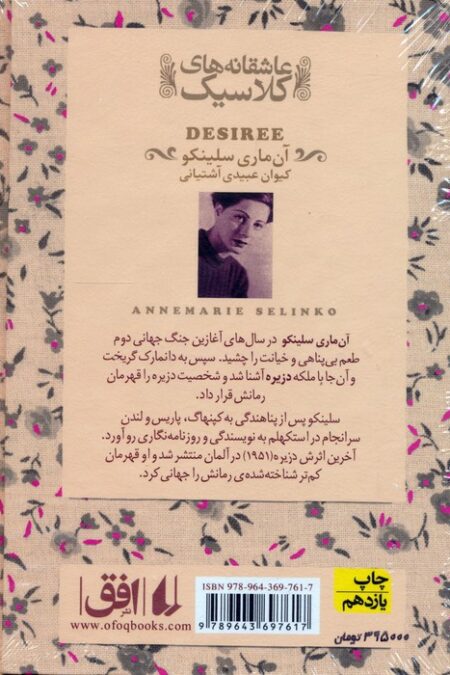 عاشقانه‌های
کلاسیک
DESIREE
آن‌ماری سلینکو
کیوان عبیدی آشتیانی
ANNEMARIE SELINKO
آن‌ماری سلینکو در سال‌های آغازین جنگ جهانی دوم
طعم بی‌پناهی و خیانت را چشید. سپس به دانمارک گریخت
و آن‌جا با ملکه دزیره آشنا شد و شخصیت دزیره را قهرمان
رمانش قرار داد.
سلینکو پس از پناهندگی به کپنهاگ، پاریس و لندن
سرانجام در استکهلم به نویسندگی و روزنامه‌نگاری رو آورد.
آخرین اثرش دزیره (۱۹۵۱) در آلمان منتشر شد و او قهرمان
کم‌تر شناخته‌شده‌ی رمانش را جهانی کرد.
نشر افق
www.ofoqbooks.com
ISBN 978-964-369-761-7
9 789643 697617
چاپ
یازدهم
۳۹۵۰۰۰ تومان